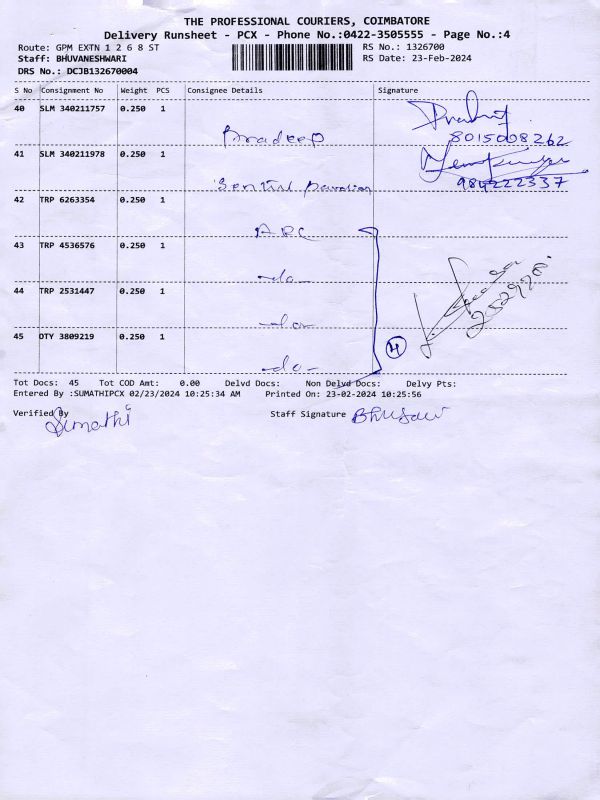 THE PROFESSIONAL COURIERS, COIMBATORE
Delivery Runsheet - PCX - Phone No.:0422-3505555 - Page No.:4
Route: GPM EXTN 1 2 6 8 ST
RS No.: 1326700
Staff: BHUVANESHWARI
RS Date: 23-Feb-2024
DRS No.: DCJB132670004
S No Consignment No Weight PCS Consignee Details Signature
40 SLM 340211757 0.250 1
Pradeep
8015008262
41 SLM 340211978 0.250 1
984222337
42 TRP 6263354 0.250 1
ARC
43 TRP 4536576 0.250 1
-do-
44 TRP 2531447 0.250 1
-do-
45 DTY 3809219 0.250 1
4
-do-
Tot Docs: 45 Tot COD Amt: 0.00 Delvd Docs: Non Delvd Docs: Delvy Pts:
Entered By :SUMATHIPCX 02/23/2024 10:25:34 AM Printed On: 23-02-2024 10:25:56
Verified By Sumathi Staff Signature